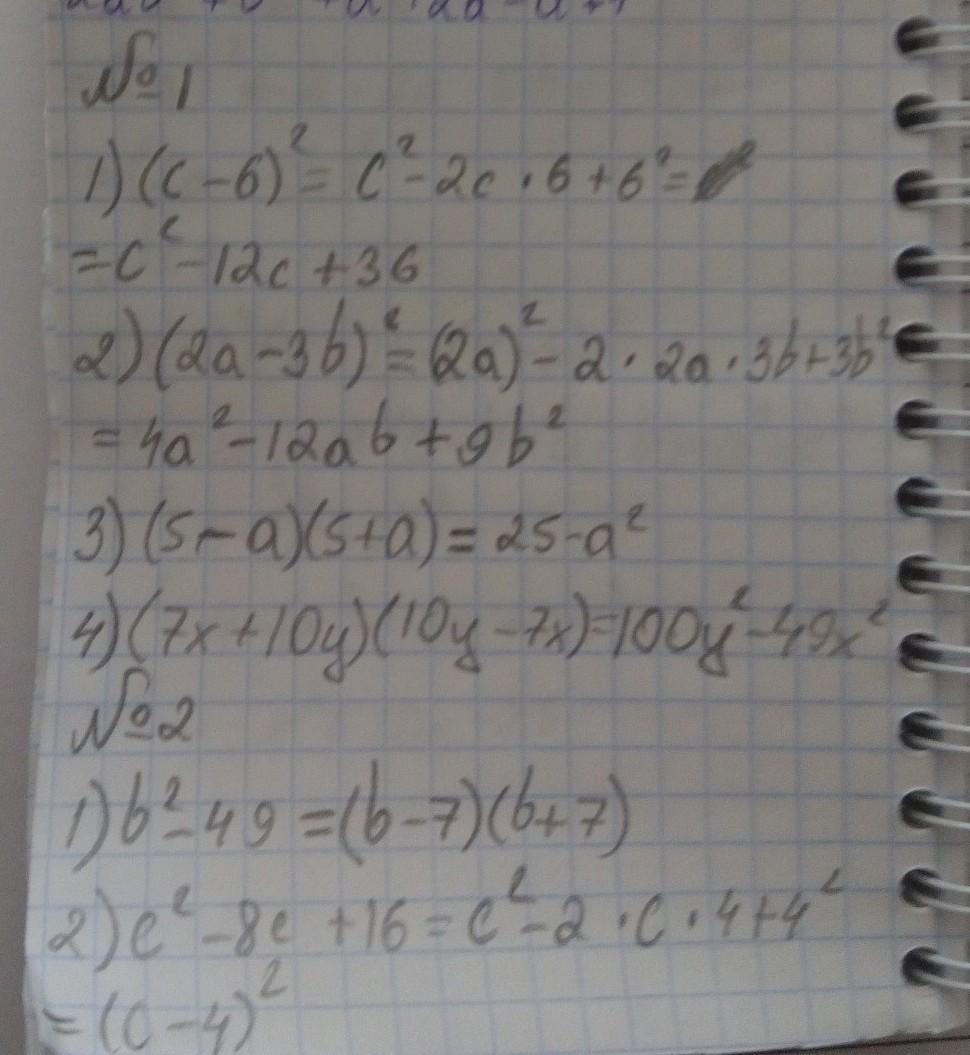 №1
1) (c - 6)² = c² - 2c · 6 + 6² =
= c² - 12c + 36
2) (2a - 3b)² = (2a)² - 2 · 2a · 3b + 3b²
= 4a² - 12ab + 9b²
3) (5 - a)(5 + a) = 25 - a²
4) (7x + 10y)(10y - 7x) = 100y² - 49x²
№2
1) b² - 49 = (b - 7)(b + 7)
2) c² - 8c + 16 = c² - 2 · c · 4 + 4²
= (c - 4)²